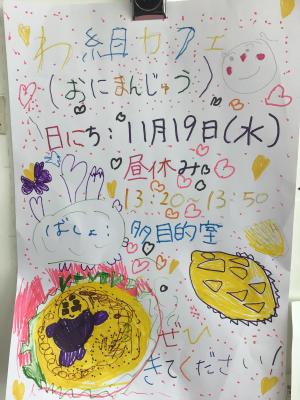 わ組カフェ
(おにまんじゅう)
日にち:11月19日(水)
昼休み
13:20~13:50
ばしょ:多目的室
ぜひ
きてください!